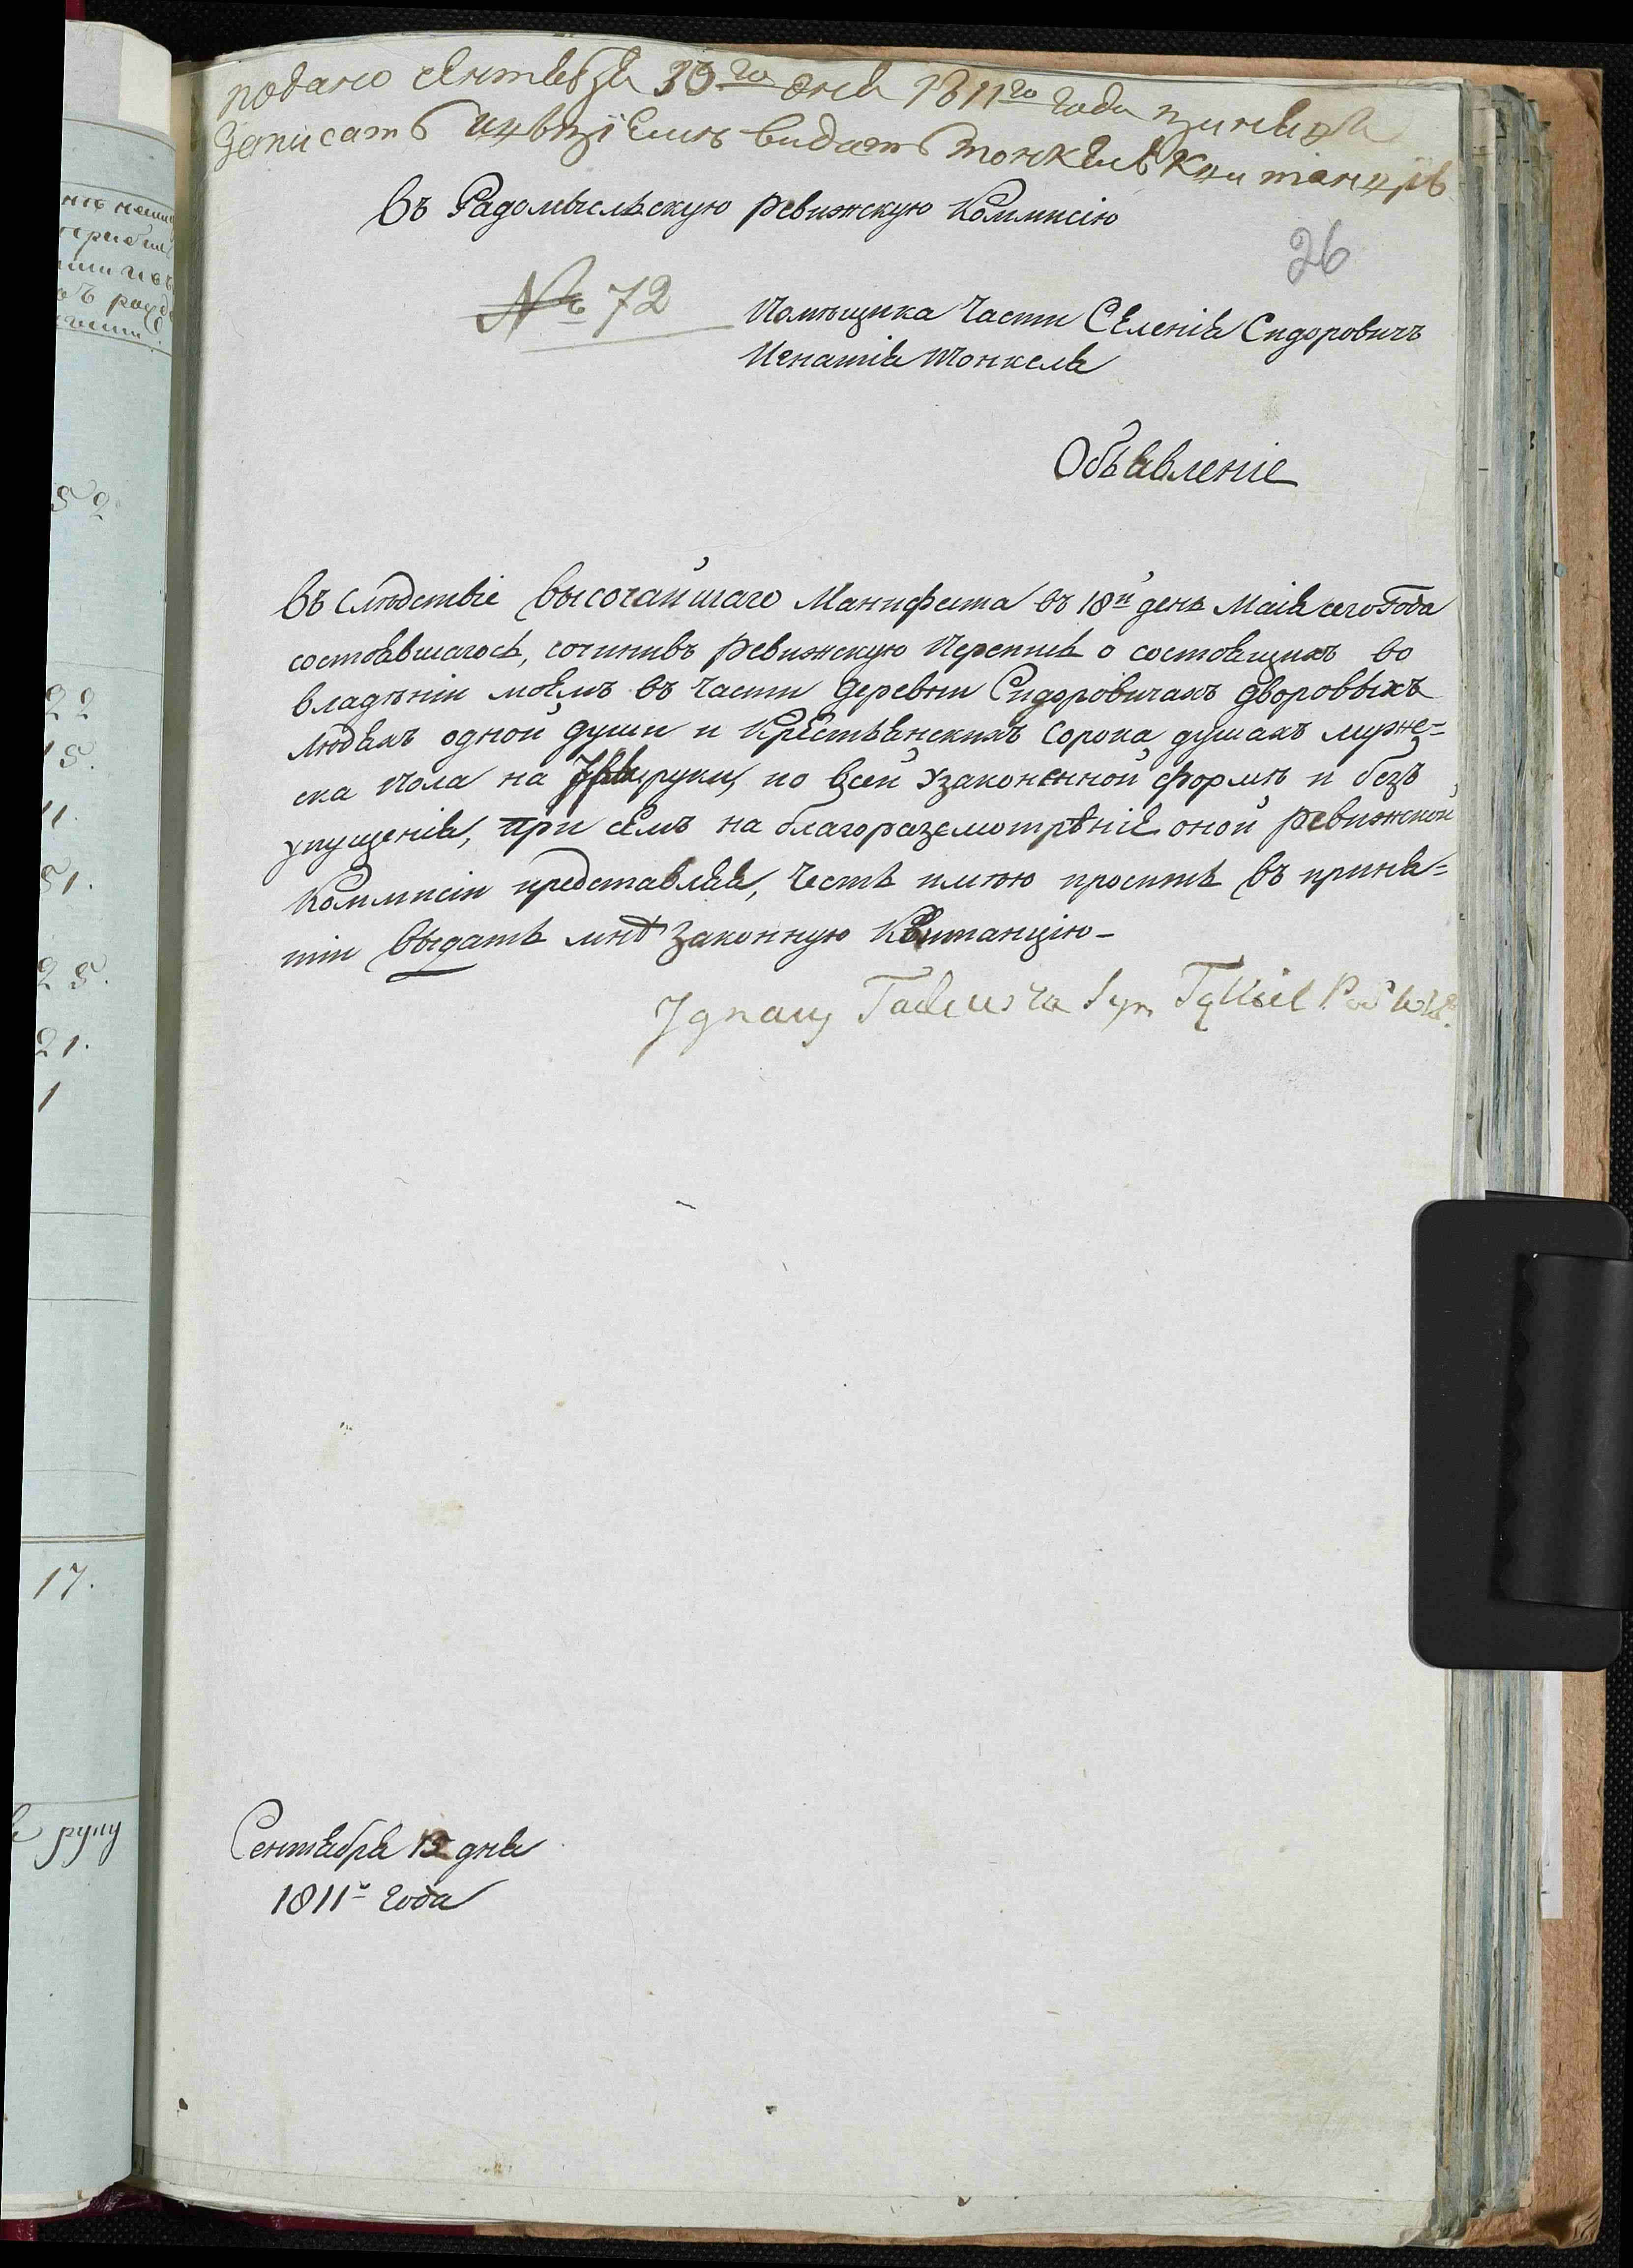 подано сентября 30го дня 1811го года принявъ
Записать и въ пріемъ видать Тонкелѣ квитанцію
Въ Радомысльскую ревижскую Коммисію
26
№ 72
Помѣщика Части Селенія Сидоровичъ
Игнатія Тонкеля
Объявленіе
Въ Слѣдствіе Высочайшаго Манифеста въ 18й день Маія сего Года
состоявшагося, сочинивъ ревижскую Перепись о состоящихъ во
владѣніи моемъ въ Части Деревни Сидоровичахъ дворовыхъ
людяхъ одной души и Крестьянскихъ Сорока душахъ муже=
ска пола на руки, по всей Узаконенной формѣ и безъ
упущенія, при семъ на благоразсмотрѣніе оной ревижской
Коммисіи представляя, Честь имѣю просить въ приня=
тіи выдать мнѣ Законную Квитанцію-
Jgnacy Tadeusza Syn
Сентября 15 дня
1811го Года
52
22
15.
11.
51.
25.
21.
1
17.
руку